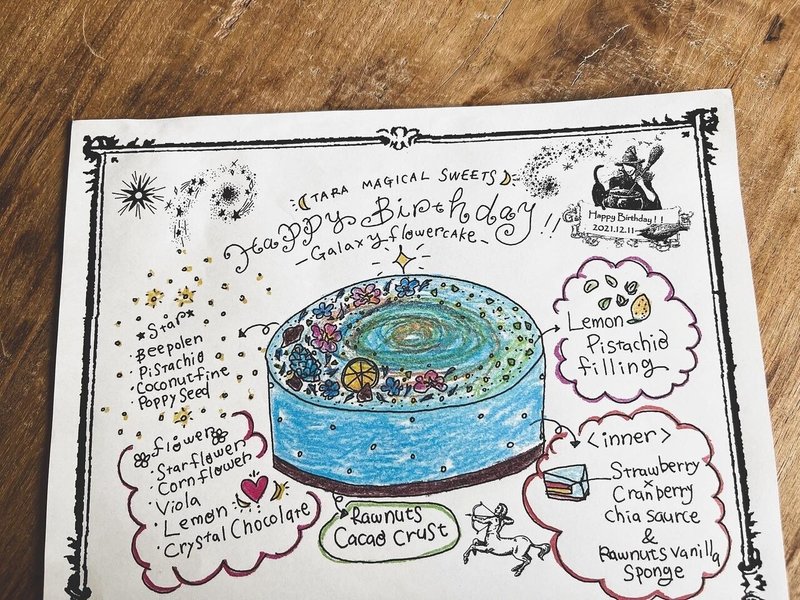 TARA MAGICAL SWEETS
Happy Birthday!!
- Galaxy flowercake -
Happy Birthday!!
2021.12.11
★Star★
・Beepolen
・Pistachio
・Coconutfine
・Poppy Seed
flower
・Starflower
・Cornflower
・Viola
・Lemon
・Crystal Chocolate
Rawnuts
Cacao Crust
Lemon
Pistachio
filling
<inner>
Strawberry
×
Cranberry
chia saurce
&
Rawnuts vanilla
Sponge